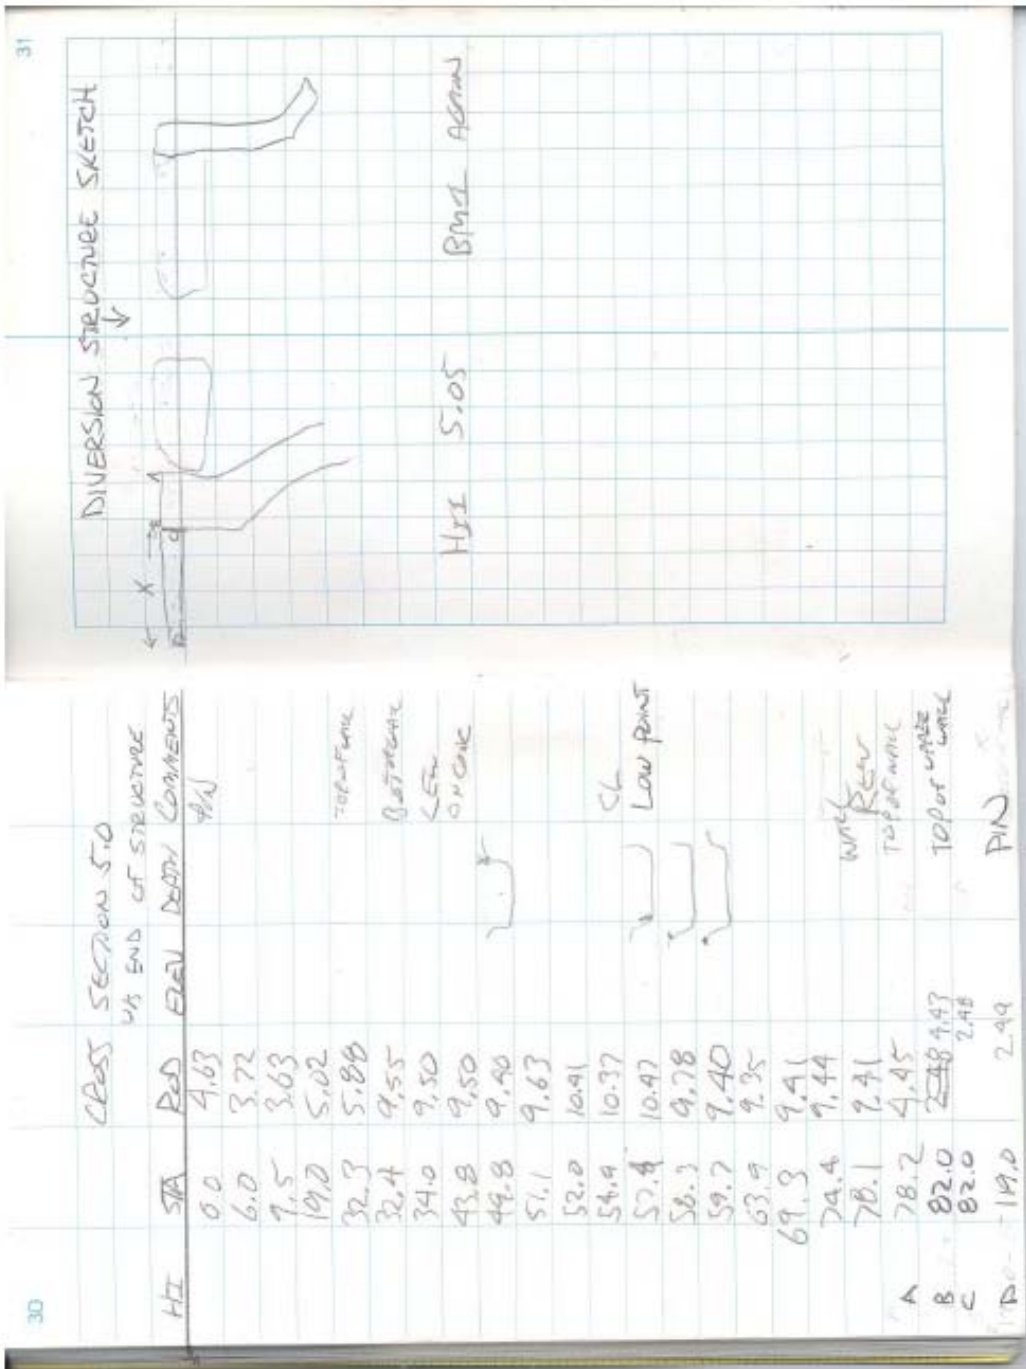 30
CROSS SECTION 5.0
U/S END OF STRUCTURE
HI STA ROD ELEV DEPTH COMMENTS
0.0 4.63 PIN
6.0 3.72
9.5 3.63
19.0 5.02
32.3 5.88 TOP OF WALL
32.4 9.55
34.0 9.50 LEW
43.8 9.50 ON CONC
49.8 9.40
51.1 9.63
52.0 10.41
54.9 10.37 CL
57.4 10.47 LOW POINT
58.3 9.78
59.7 9.40
63.9 9.35
69.3 9.41
74.4 9.44 WALL
78.1 9.41 REW
A 78.2 4.45 TOP OF WALL
B 82.0 2.48 4.43 TOP OF WALL
C 82.0 2.48
D 119.0 2.49 PIN
31
DIVERSION STRUCTURE SKETCH
X
A
B
C
D
HI1 5.05 BM1 AGAIN